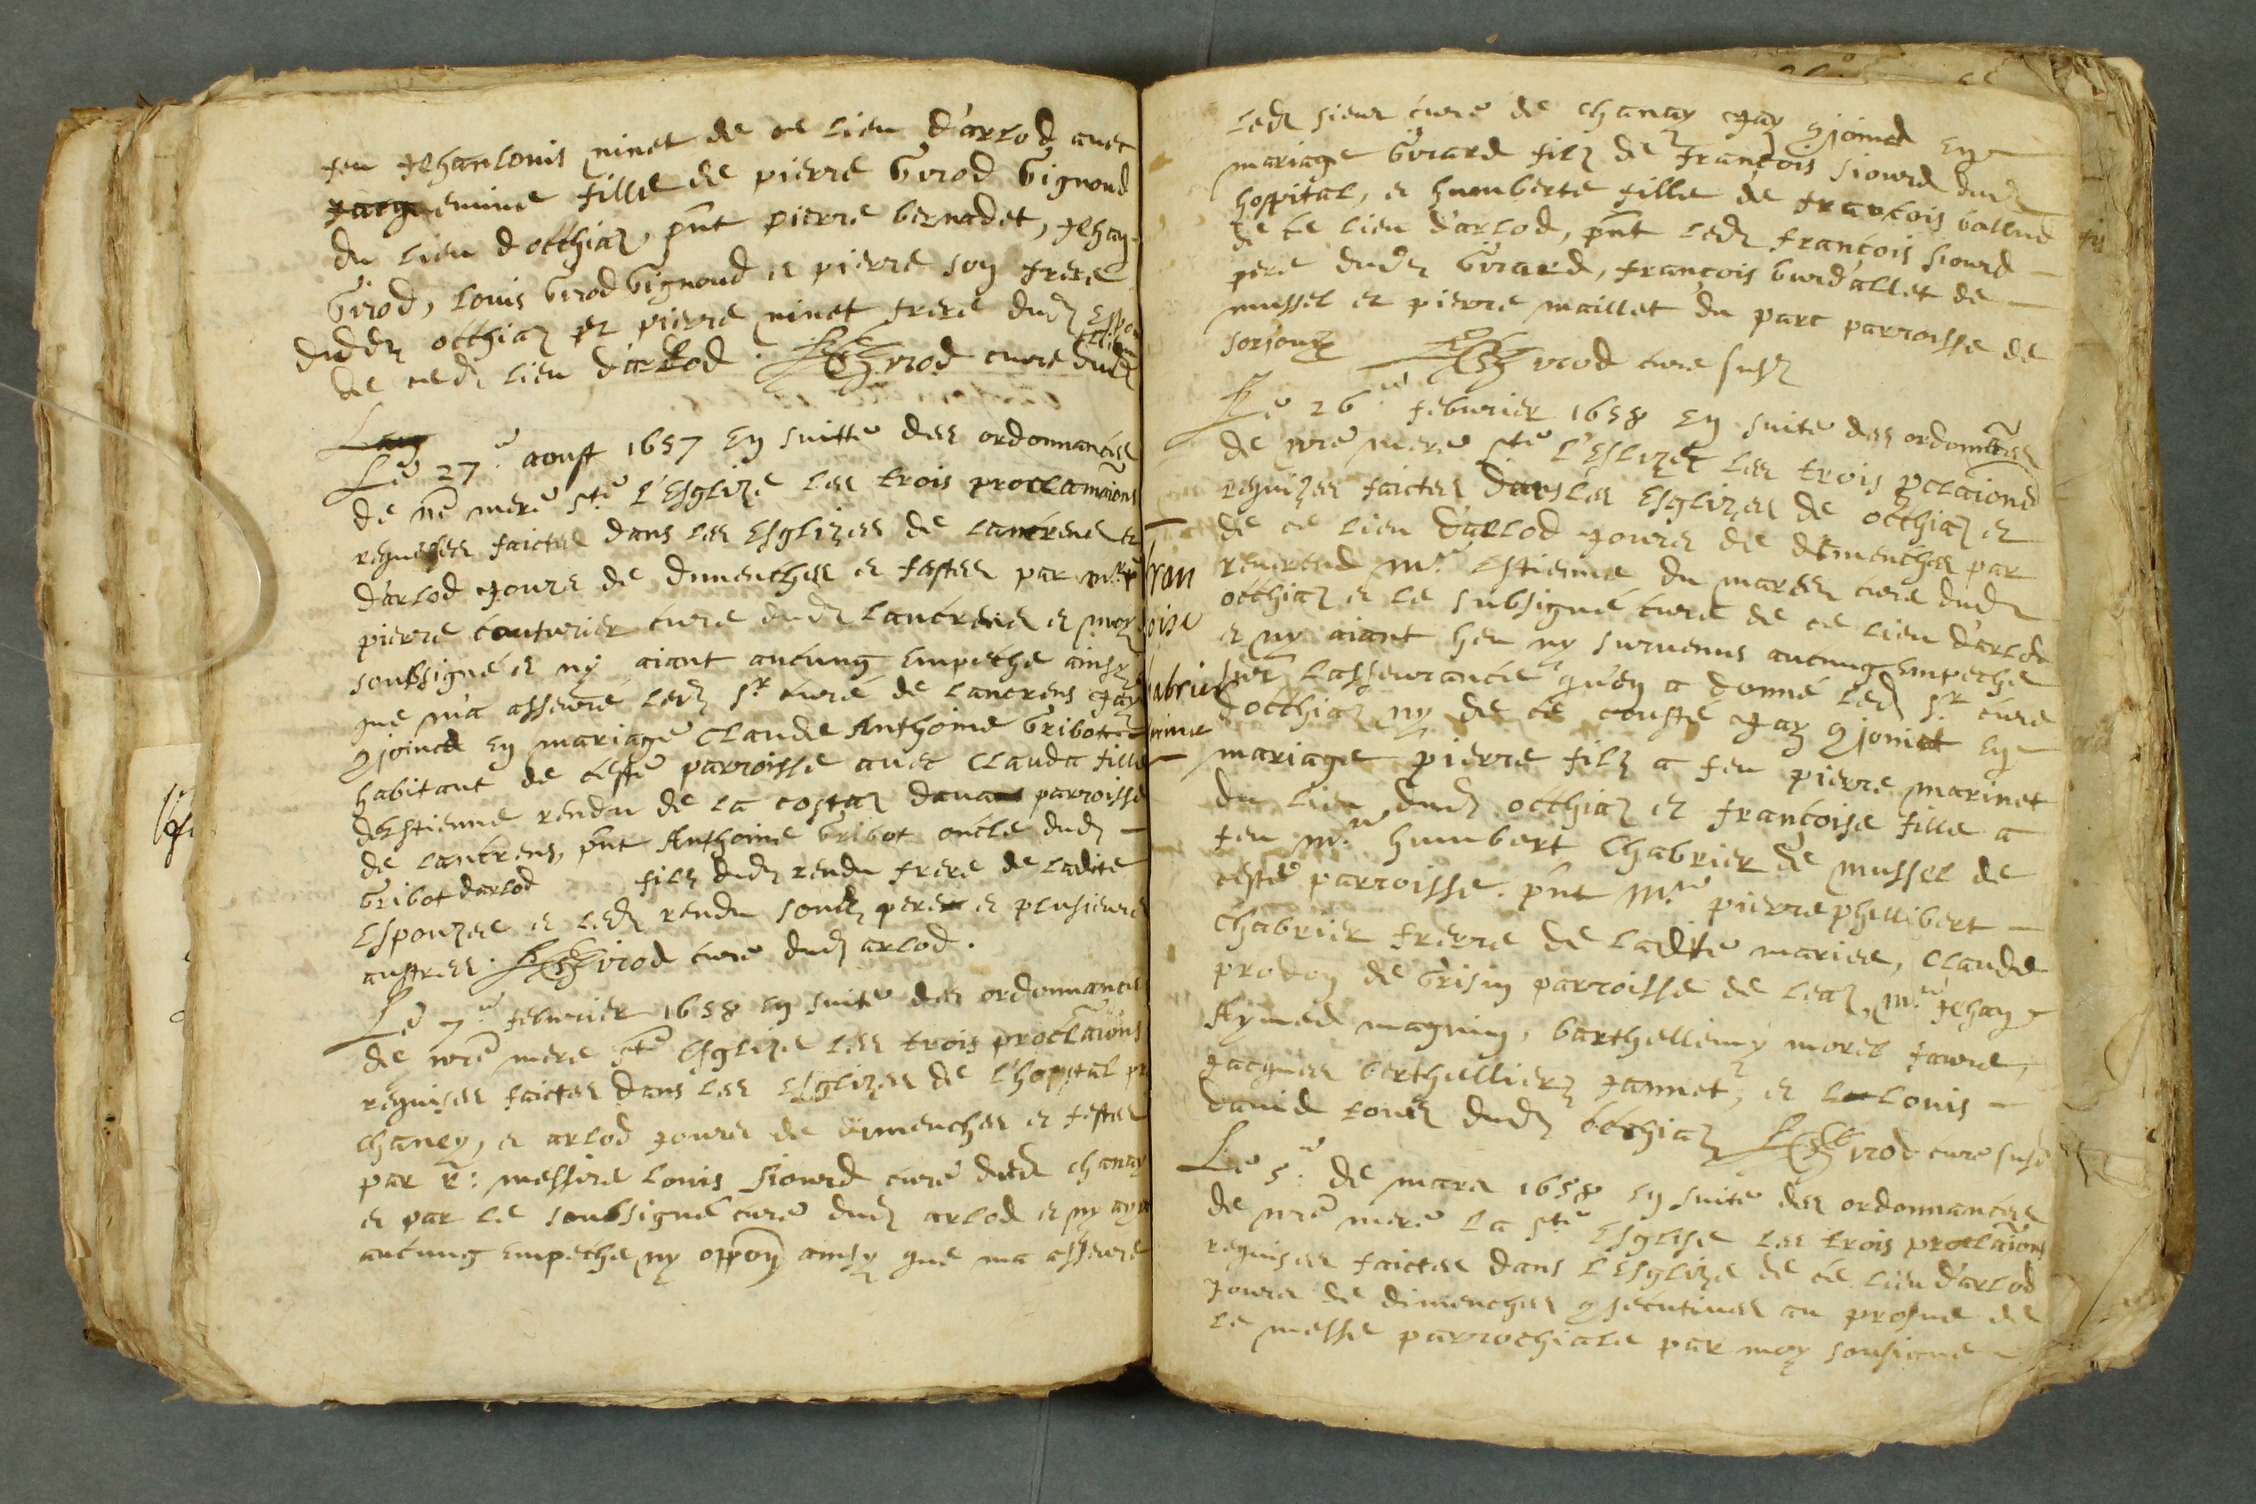 feu Jehanlouis ninet de ce lieu d'arlod avec
emine fille de pierre Girod Gignoud
du lieu dotthiaz, pnt pierre bernadet, Jehan
Girod, louis Girod Gignoud et pierre son frere
dudt otthiaz et pierre ninet frere dudt Espou
de cedt lieu d'arlod. Girod cure dudt
Le 27e aoust 1657 En suitte des ordonnances
de nre mere ste l'Esglize les trois proclamaons
requeses faictes dans les Esglizes de lancrens et
d'arlod Jours de dimenches et festes par mre
pierre couturier cure dudt lancrens et moy
soubsigné et ny aiant aucung empeche ainsy
que m'a asseuré ledt sr curé de lancrens Jay
9joinct En mariage Claude Anthoine Gribot
habitant de ceste parroisse avec Clauda fille
dEstienne rendu de la costaz parroisse
de lancrens, pnt Anthoine Gribot oncle dudt
Gribot darlod fils dudt rendu frere de ladite
Espouzee et ledt rendu sondt pere et plusieurs
austres. Girod cure dudt arlod.
Le 7e febvrier 1658 en suite des ordonnances
de nre mere ste Esglize les trois proclaions
requises faictes dans les Esglizes de l'hopital
chaney, et arlod Jours de dimenches et festes
par R: messire louis Siourd cure dudt chanay
et par le soubsigné cure dudt arlod et ny ayant
aucung empeche ny oppon ainsy que ma asseure
ledt sieur cure de chanay Jay 9joinct En
mariage Girard filz de francois Siourd dudt
hospital, et humberte fille de francois ballud
de ce lieu d'arlod, pnt ledt francois siourd
pere dudt Girard, francois burdallet de
mussel et pierre maillet du parc parroisse de
sorsonx Girod cure susdt
Le 26e febvrier 1658 En suite des ordonnces
de nre mere ste l'Eslize les trois pclaions
requizes faictes dans les Esglizes de otthiaz et
de ce lieu d'arlod Jours de dimenches par
reverend mre Estienne du mares cure dudt
otthiaz et le subsigné cure de ce lieu d'arlod
et ny aiant heu ny survenus aucung Empeche
sur lasseurance qu'en a donné ledt sr cure
dotthiaz ny de ce cousté Jay 9joinct En
mariage pierre filz a feu pierre marinet
du lieu dudt otthiaz et francoise fille a
feu mre humbert Chabrier de mussel de
ceste parroisse. pnt mre pierre phillibert
Chabrier frerre de ladite mariee, Claude
prodon de Grisin parroisse de leaz, mre Jehan
Aymed magnin, barthellemy morel favre,
Jacques berthellier Jannet, et louis
david tous dudt otthiaz Girod cure susdt
Le 5e de mars 1658 en suite des ordonnances
de nre mere la ste Esglise les trois proclaions
requises faictes dans l'Esglize de ce lieu d'arlod
Jours de dimenches 9secutives au prosne de
le messe parrochiale par moy sousigne